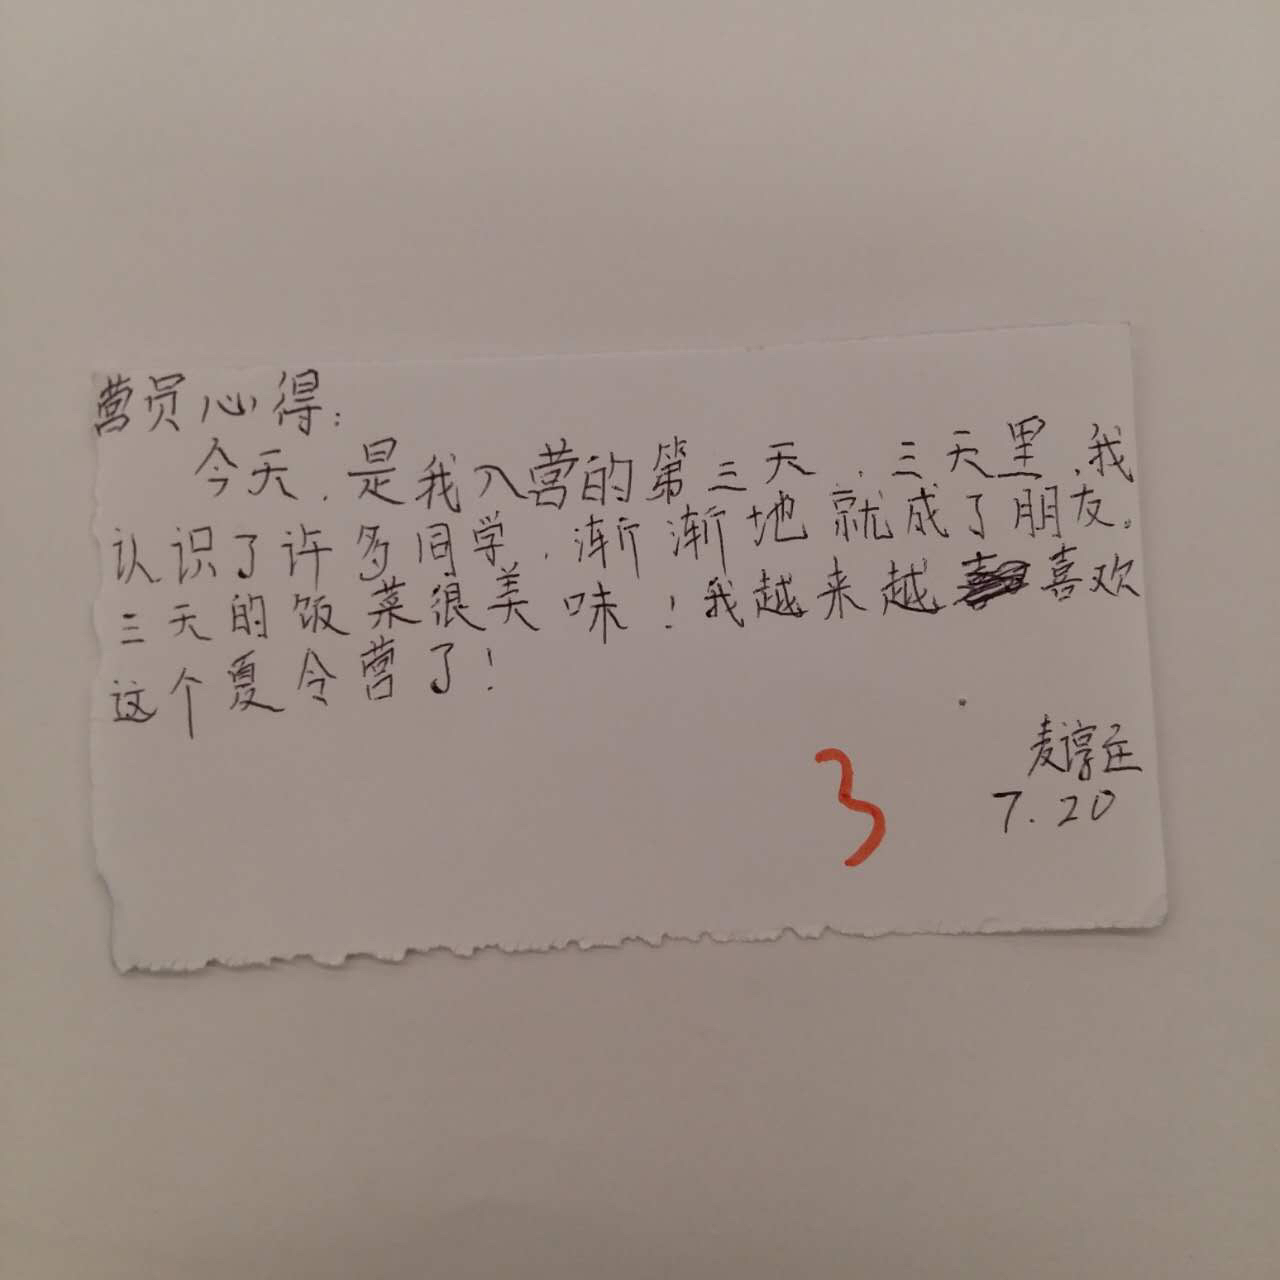 营员心得：
今天，是我入营的第三天，三天里，我
认识了许多同学，渐渐地就成了朋友。
三天的饭菜很美味！我越来越喜欢
这个夏令营了！
麦淳
7.20
3